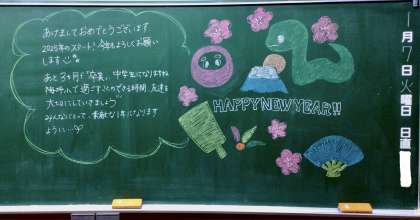 あけましておめでとうございます
2025年のスタート!今年もよろしくお願い
します
あと3ヶ月で「卒業」、中学生になりますね
で過ごすこのできる時間、友達を
大切にしていきましょう
みんなにとって、素敵な1年になります
ように…
HAPPY NEW YEAR!!
1月7日火曜日 日直